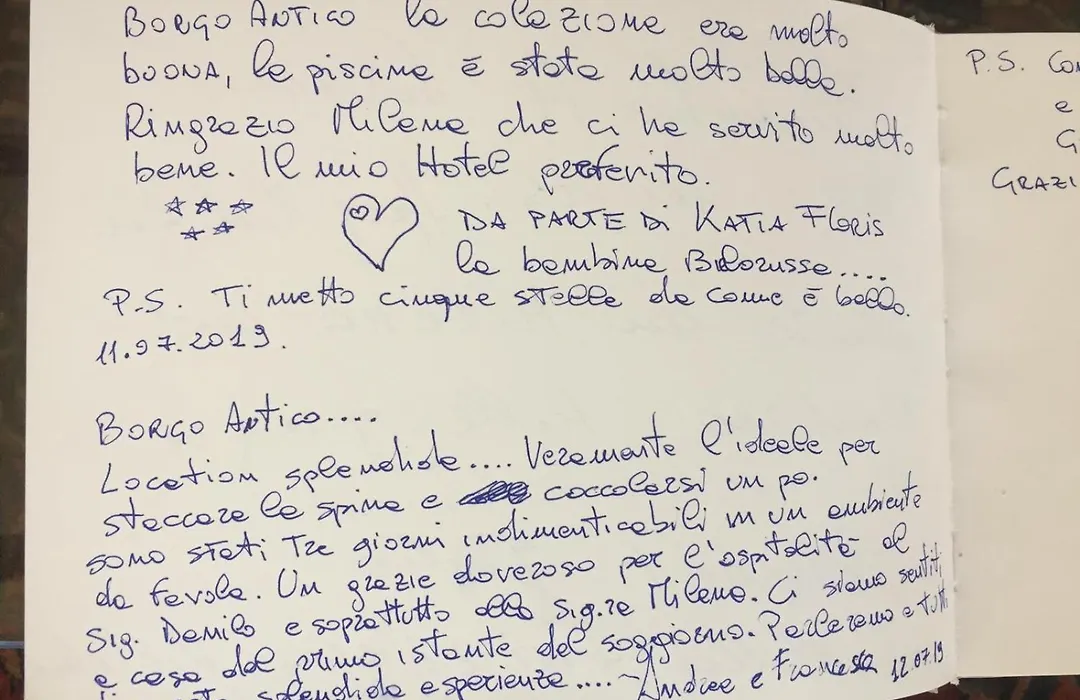 BORGO ANTICO la colazione era molto
buona, la piscina è stata molto bella.
Ringrazio Milena che ci ha servito molto
bene. Il mio Hotel preferito.
DA PARTE DI KATIA Floris
la bambina Bielorussa....
P.S. Ti metto cinque stelle da come è bello.
11.07.2019.
BORGO ANTICO....
Location splendida.... Veramente l'ideale per
staccare la spina e coccolarsi un po.
sono stati Tre giorni indimenticabili in un ambiente
da favola. Un grazie doveroso per l'ospitalità al
Sig. Danilo e soprattutto alla Sig.ra Milena. Ci siamo sentiti
a casa dal primo istante del soggiorno. Parleremo a tutti
splendida esperienza.... Andrea e Francesca 12.07.19
P.S. Con
e
G
GRAZI